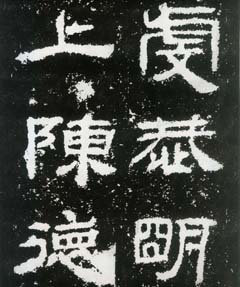 虔恭明
上陳德